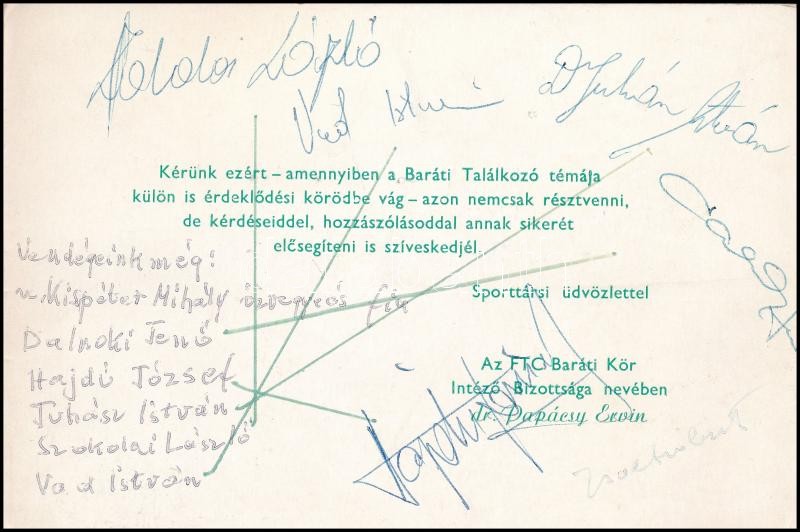 László
István
Dr Juhász István
Kérünk ezért – amennyiben a Baráti Találkozó témája
külön is érdeklődési körödbe vág – azon nemcsak résztvenni,
de kérdéseiddel, hozzászólásoddal annak sikerét
elősegíteni is szíveskedjél.
Vendégeink még:
v. Kispéter Mihály özvegye és fia
Dalnoki Jenő
Hajdú József
Juhász István
Szokolai László
Vad István
Sporttársi üdvözlettel
Az FTC Baráti Kör
Intéző Bizottsága nevében
dr. Papácsy Ervin